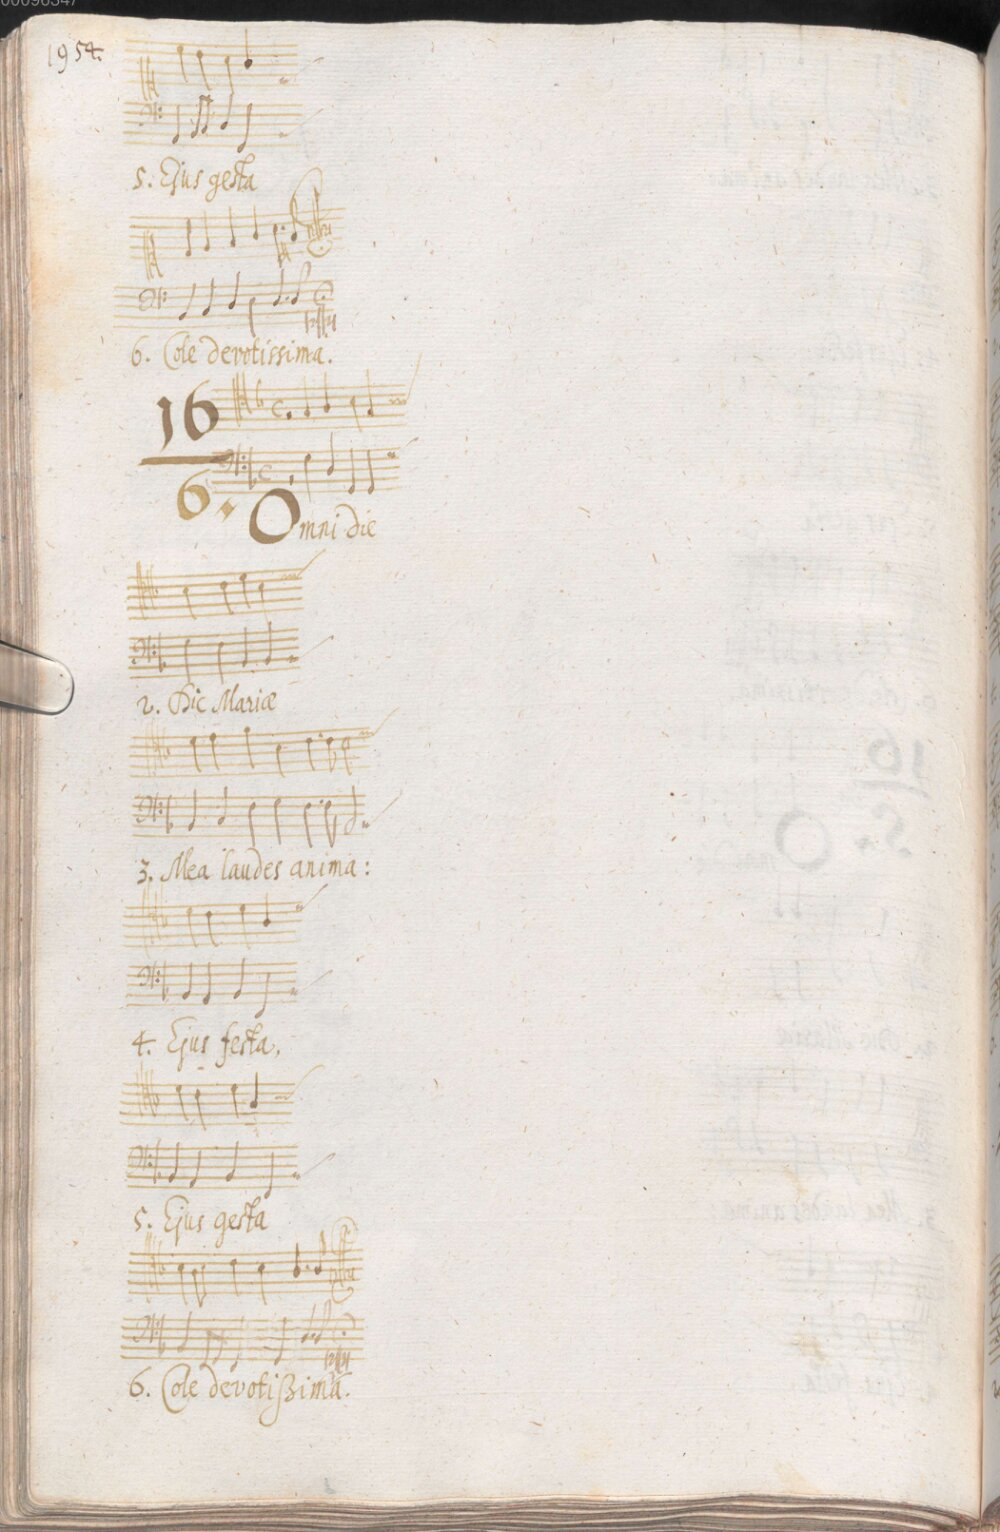 1954.
5. Ejus gesta
6. Cole devotissima.
16
6. Omni die
2. Dic Mariæ
3. Mea laudes anima:
4. Ejus festa.
5. Ejus gesta
6. Cole devotißima.